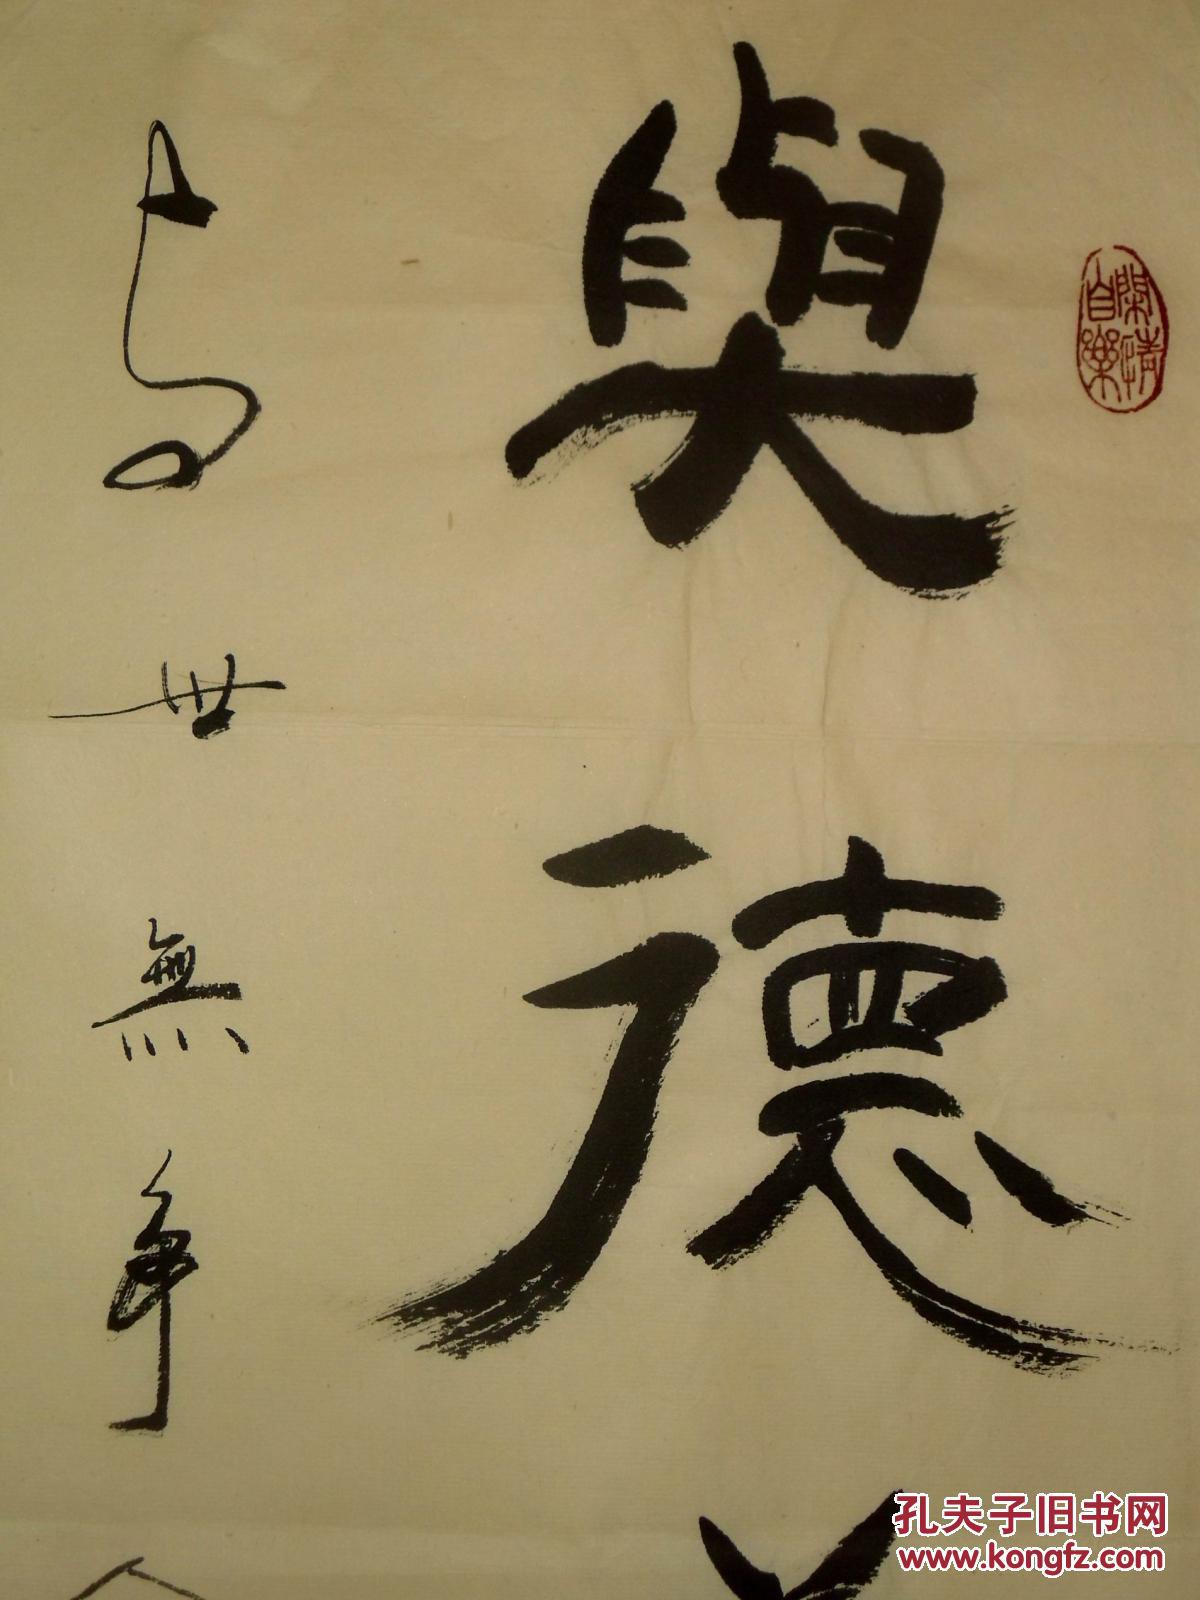 與德
与世無争
閑情自樂
孔夫子旧书网
www.kongfz.com